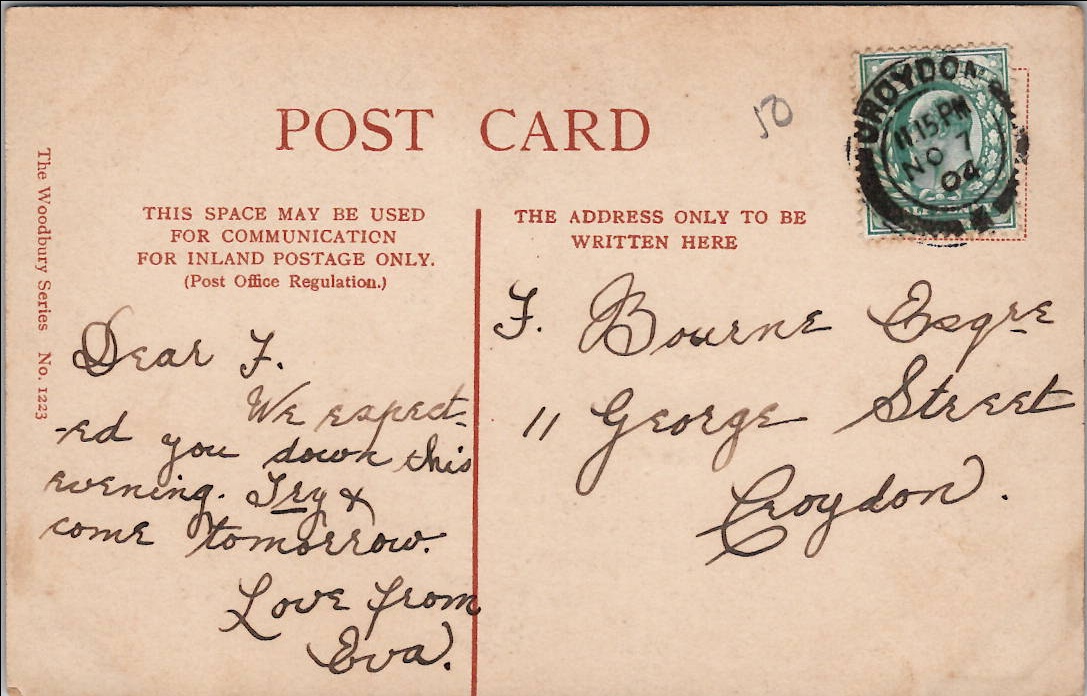 POST CARD
50
CROYDON
11.15 PM
NO 7
04
The Woodbury Series No. 1223
THIS SPACE MAY BE USED
FOR COMMUNICATION
FOR INLAND POSTAGE ONLY.
(Post Office Regulation.)
Dear F.
We expect-
-ed you down this
evening. Try &
come tomorrow.
Love from
Eva.
THE ADDRESS ONLY TO BE
WRITTEN HERE
F. Bourne Esqre
11 George Street
Croydon.